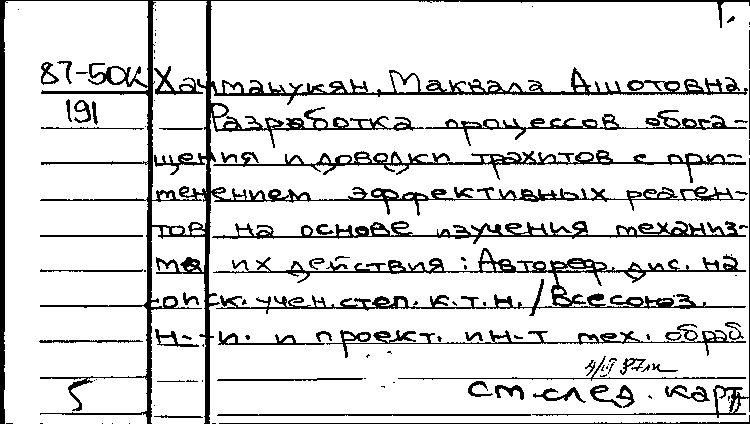 1.
87-50К Хачманукян, Маквала Ашотовна.
191 Разработка процессов обога-
щения и доводки трахитов с при-
менением эффективных реаген-
тов на основе изучения механиз-
ма их действия: Автореф. дис. на
соиск. учен. степ. к.т.н. / Всесоюз.
н.-и. и проект. ин-т мех. обраб
87
5 см. след. карт